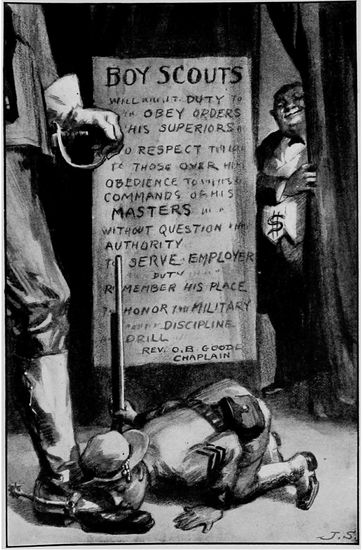 BOY SCOUTS
WILL DUTY TO
OBEY ORDERS
HIS SUPERIORS
RESPECT
TO THOSE OVER HIM
OBEDIENCE TO
COMMANDS OF HIS
MASTERS
WITHOUT QUESTION
AUTHORITY
TO SERVE EMPLOYER
DUTY
REMEMBER HIS PLACE
TO HONOR THE MILITARY
DISCIPLINE
DRILL
REV. O.B. GOODE
CHAPLAIN
$
J.S.